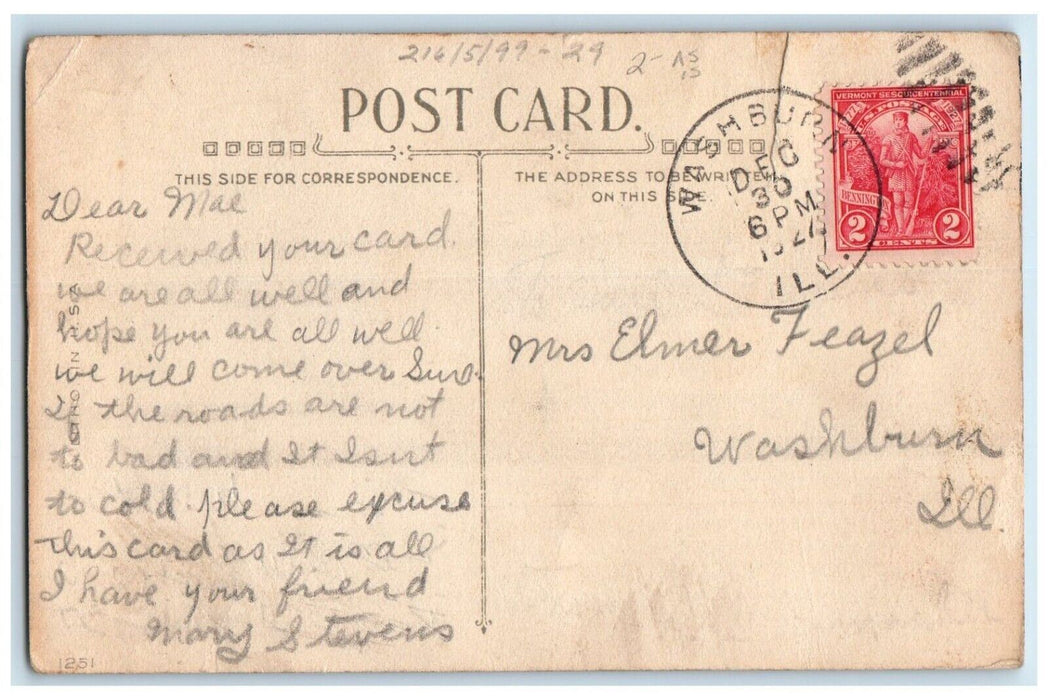 216/5/99-29
2- AS
IS
POST CARD.
THIS SIDE FOR CORRESPONDENCE.
THE ADDRESS TO BE WRITTEN
ON THIS SIDE.
WASHBURN
DEC
30
6 PM
1927
ILL.
VERMONT SESQUICENTENNIAL
U.S. POSTAGE
1777 1927
BENNINGTON
2 CENTS 2
Dear Mae
Received your card.
we are all well and
hope you are all well.
we will come over Sun.
If the roads are not
to bad and It Isnt
to cold. please excuse
this card as It is all
I have your friend
Mary Stevens
Mrs Elmer Feazel
Washburn
Ill.
1251